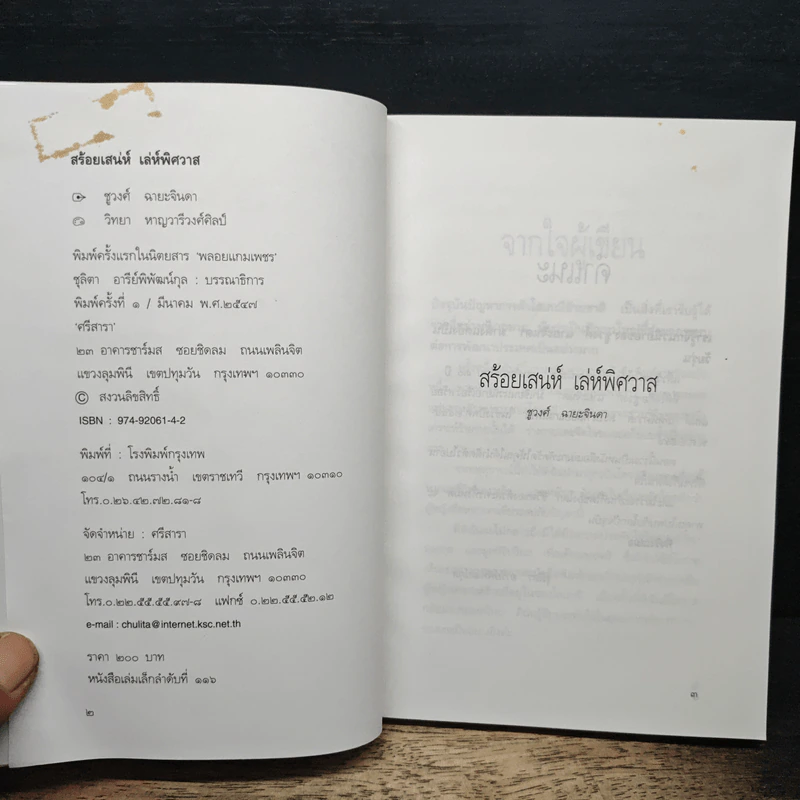 สร้อยเสน่ห์ เล่ห์พิศวาส
ชูวงศ์ ฉายะจินดา
วิทยา หาญวารีวงศ์ศิลป์
พิมพ์ครั้งแรกในนิตยสาร 'พลอยแกมเพชร'
ชุลิตา อารีย์พิพัฒน์กุล : บรรณาธิการ
พิมพ์ครั้งที่ ๑ / มีนาคม พ.ศ.๒๕๔๗
'ศรีสารา'
๒๓ อาคารชาร์มส ซอยชิดลม ถนนเพลินจิต
แขวงลุมพินี เขตปทุมวัน กรุงเทพฯ ๑๐๓๓๐
© สงวนลิขสิทธิ์
ISBN : 974-92061-4-2
พิมพ์ที่ : โรงพิมพ์กรุงเทพ
๑๐๔/๑ ถนนรางน้ำ เขตราชเทวี กรุงเทพฯ ๑๐๓๑๐
โทร.๐.๒๖.๔๒.๗๒.๘๑-๘
จัดจำหน่าย : ศรีสารา
๒๓ อาคารชาร์มส ซอยชิดลม ถนนเพลินจิต
แขวงลุมพินี เขตปทุมวัน กรุงเทพฯ ๑๐๓๓๐
โทร.๐.๒๒.๕๕.๕๕.๙๗-๘ แฟกซ์ ๐.๒๒.๕๕.๕๒.๑๒
e-mail : chulita@internet.ksc.net.th
ราคา ๒๐๐ บาท
หนังสือเล่มเล็กลำดับที่ ๑๑๖
๒
สร้อยเสน่ห์ เล่ห์พิศวาส
ชูวงศ์ ฉายะจินดา
๓